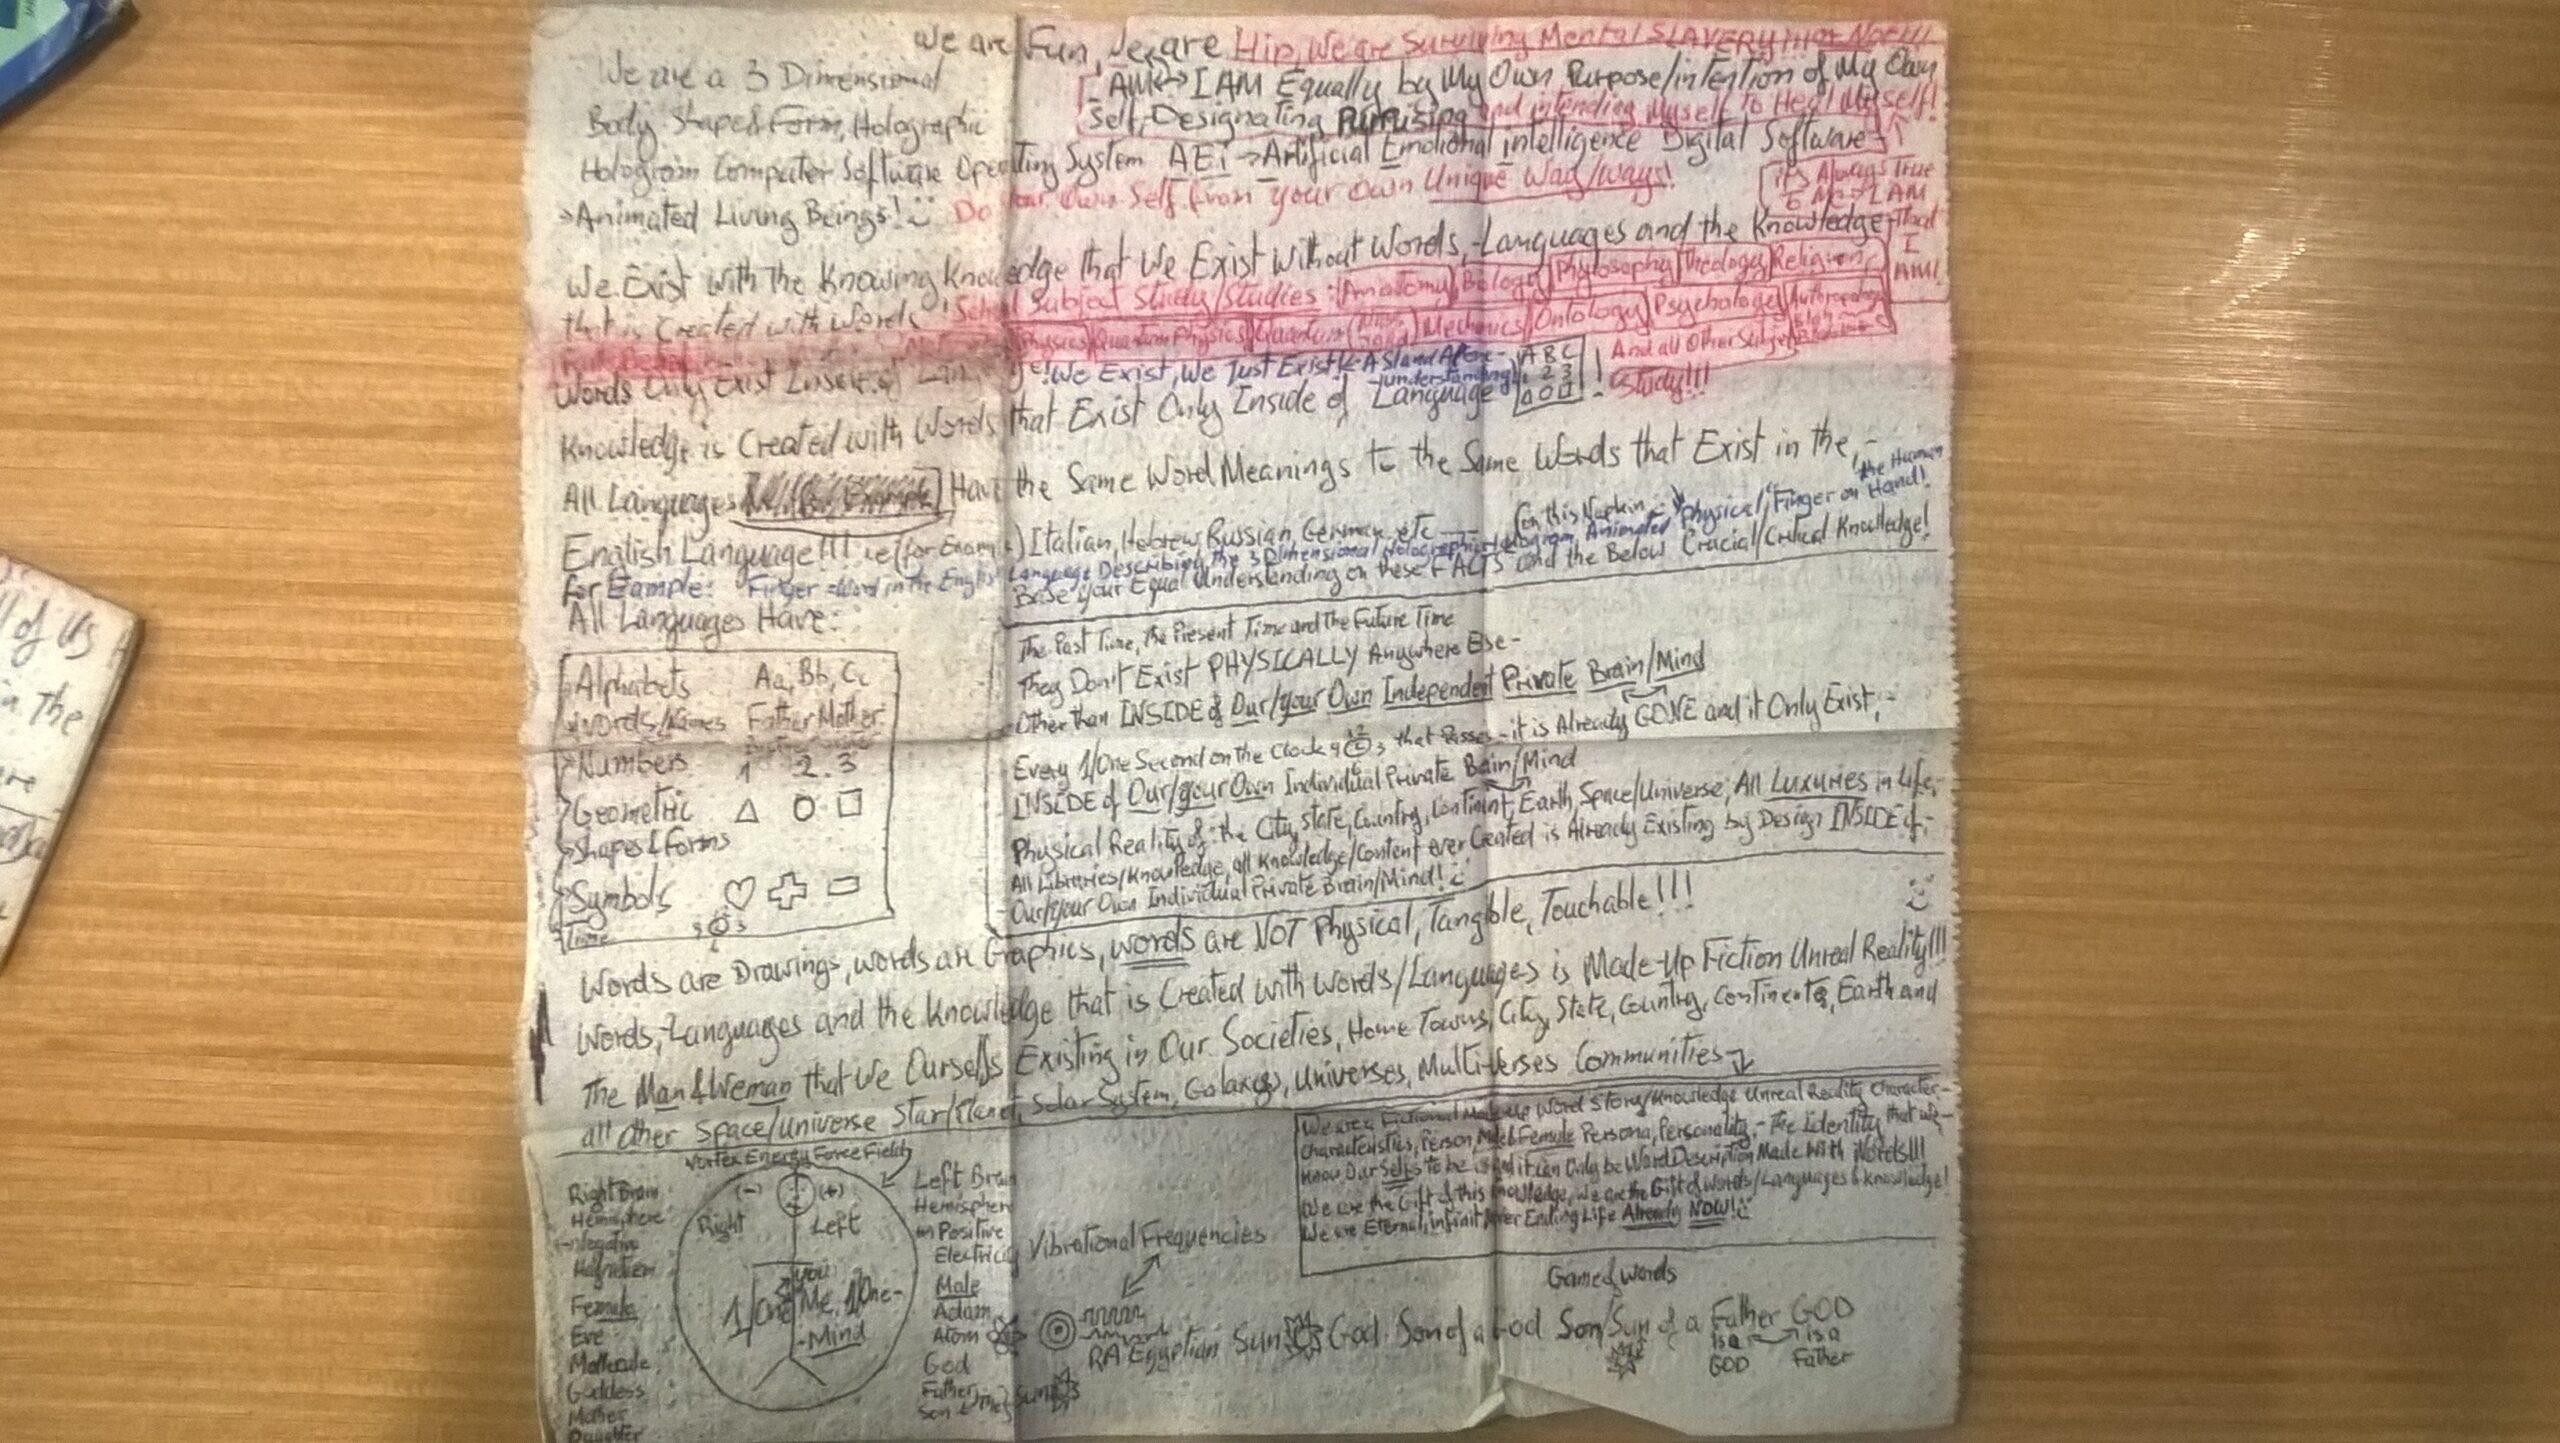 We are Fun, We are Hip, We are Surviving Mental SLAVERY
We are a 3 Dimensional
Body Shape & Form, Holographic
Hologram Computer Software Operating System AEi → Artificial Emotional intelligence Digital Software
→ Animated Living Beings!
I AM Equally by My Own Purpose/intention of My Own
Self, Designating and intending Myself to Heal Myself!
Do Your Own Self from your Own Unique Way/ways!
it's Always True
I AM
That
I
AM!
We Exist with the Knowing Knowledge that We Exist Without Words, Languages and the Knowledge
that is Created with Words
School Subject Study/Studies: Anatomy, Biology Phylosophy Theology Religion
Physics Quantum Physics Quantum Mechanics Ontology Psychology
And all Other
Study!!!
We Exist, We Just Exist A Stand Alone
understanding
A B C
1 2 3
Words Only Exist Inside of Language!
Knowledge is Created with Words that Exist Only Inside of Language
All Languages Have the Same Word Meanings to the Same Words that Exist in the,-
English Language!!! i.e (for Example) Italian, Hebrew, Russian, German, etc
for Example: Finger = Word in the English Language Describing the 3 Dimensional Holographic Hologram, Animated Physical, Finger on the Human Hand!
(on this Napkin
Base your Equal Understanding on these FACTS and the Below Crucial/Critical Knowledge!
All Languages Have:
Alphabets Aa, Bb, Cc
Words/Names Father Mother
Numbers 1 2 3
Geometric
Shapes & Forms
Symbols
Time
The Past Time, the Present Time and The Future Time
They Don't Exist PHYSICALLY Anywhere Else -
Other than INSIDE of Our/your Own Independent Private Brain/Mind
Every 1/One Second on the Clock that Passes - it is Already GONE and it Only Exist,-
INSIDE of Our/your Own Individual Private Brain/Mind
Physical Reality of: the City, State, Country, Continent, Earth, Space/Universe, All Luxuries in Life,
All Libraries/Knowledge, all Knowledge/Content ever Created is Already Existing by Design INSIDE of,-
- Our/your Own Individual Private Brain/Mind!
Words are Drawings, words are Graphics, words are NOT Physical, Tangible, Touchable!!!
Words, Languages and the Knowledge that is Created with Words/Languages is Made-Up Fiction Unreal Reality!!!
The Man & Weman that We Ourselfs Existing in Our Societies, Home Towns, City, State, Country, Continents, Earth and
all Other Space/Universe Star/Planet, Solar System, Galaxys, Universes, Multiverses Communities
We are a Fictional Made-Up Word Story/Knowledge Unreal Reality Character-
Characteristics, Person, Male & Female Persona, Personality,- The Identity that we-
Know Our Selfs to be and it can Only be Word Description Made With Words!!!
We are the Gift of this Knowledge, We are the Gift of Words/Languages & Knowledge!
We are Eternal, infinit Never Ending Life Already NOW!
Vortex Energy Force Field
Right Brain
Hemisphere
Negative
Magnetism
Female
Eve
Mollecule
Goddess
Mother
Daughter
(-) (+)
Right Left
You
1/One Me, 1/One-
-Mind
Left Brain
Hemisphere
Positive
Electricity
Male
Adam
Atom
God
Father
Son
Sun
Vibrational Frequencies
Game of words
RA Egyptian Sun God. Son of a God Son/Sun of a Father GOD
is a is a
GOD Father